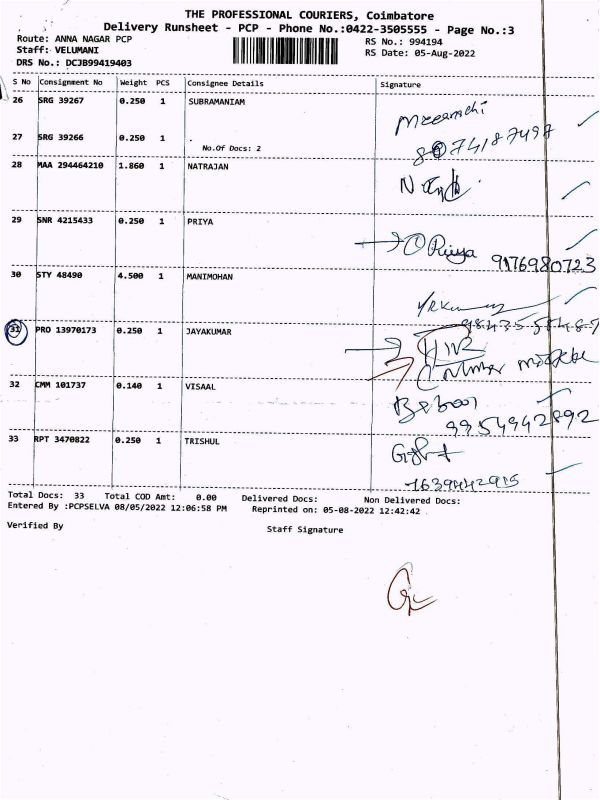 THE PROFESSIONAL COURIERS, Coimbatore
Delivery Runsheet - PCP - Phone No.:0422-3505555 - Page No.:3
Route: ANNA NAGAR PCP
RS No.: 994194
Staff: VELUMANI
RS Date: 05-Aug-2022
DRS No.: DCJB99419403
S No Consignment No Weight PCS Consignee Details Signature
26 SRG 39267 0.250 1 SUBRAMANIAM
27 SRG 39266 0.250 1 .
No.Of Docs: 2
28 MAA 294464210 1.860 1 NATRAJAN
29 SNR 4215433 0.250 1 PRIYA
Priya
9176980723
30 STY 48490 4.500 1 MANIMOHAN
31 PRO 13970173 0.250 1 JAYAKUMAR
32 CMM 101737 0.140 1 VISAAL
9954942892
33 RPT 3470822 0.250 1 TRISHUL
Total Docs: 33 Total COD Amt: 0.00 Delivered Docs: Non Delivered Docs:
Entered By :PCPSELVA 08/05/2022 12:06:58 PM Reprinted on: 05-08-2022 12:42:42
Verified By Staff Signature